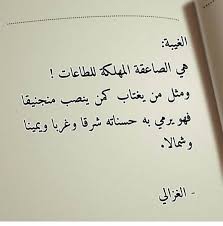 الغيبة:
هي الصاعقة المهلكة للطاعات !
ومثل من يغتاب كمن ينصب منجنيقا
فهو يرمي به حسناته شرقا وغربا ويمينا
وشمالا.
- الغزالي